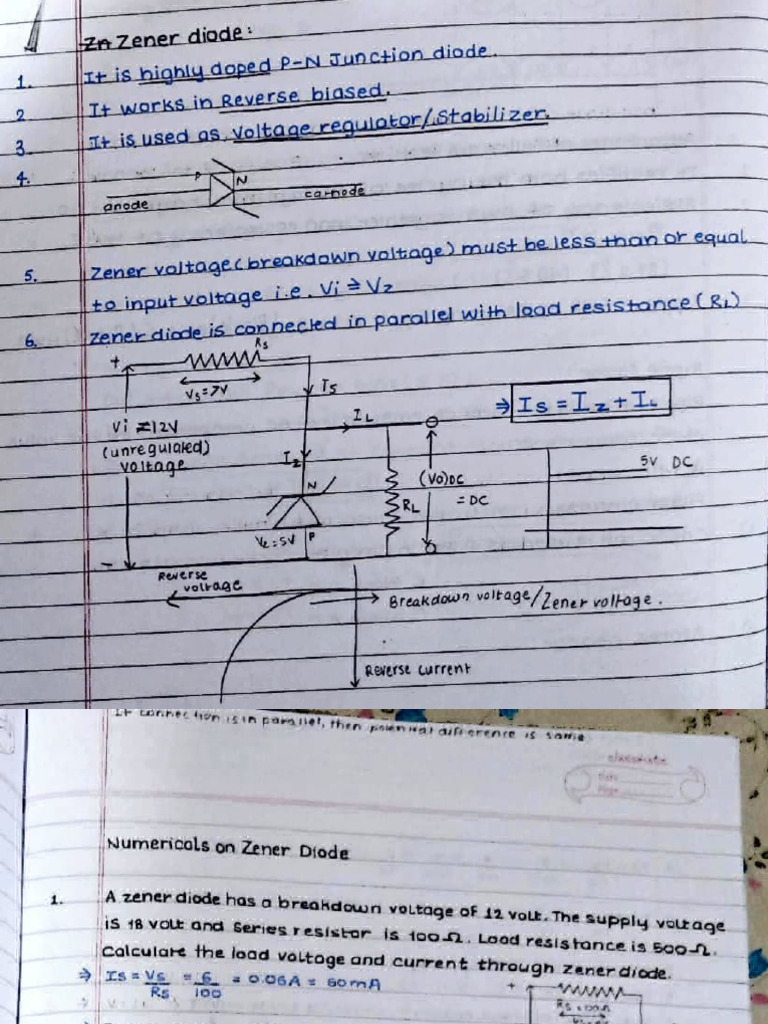 Zener diode:
1. It is highly doped P-N Junction diode.
2 It works in Reverse biased.
3. It is used as Voltage regulator/Stabilizer.
4.
P N
anode cathode
5. Zener voltage (breakdown voltage) must be less than or equal
to input voltage i.e. Vi ≥ Vz
6. Zener diode is connected in parallel with load resistance (RL)
+ Rs
Vs = 7V Is
⇒ Is = Iz + IL
Vi = 12V IL
(unregulated)
voltage
Iz (Vo)DC 5V DC
N RL = DC
Vz = 5V P
-
Reverse
voltage
Breakdown voltage/Zener voltage.
Reverse current
It connection is in parallel, then potential difference is same
classmate
Date
Page
Numericals on Zener Diode
1. A zener diode has a breakdown voltage of 12 volt. The supply voltage
is 18 volt and Series resistor is 100Ω. Load resistance is 500Ω.
Calculate the load voltage and current through zener diode.
⇒ Is = Vs/Rs = 6/100 = 0.06A = 60mA
+
Rs = 100Ω